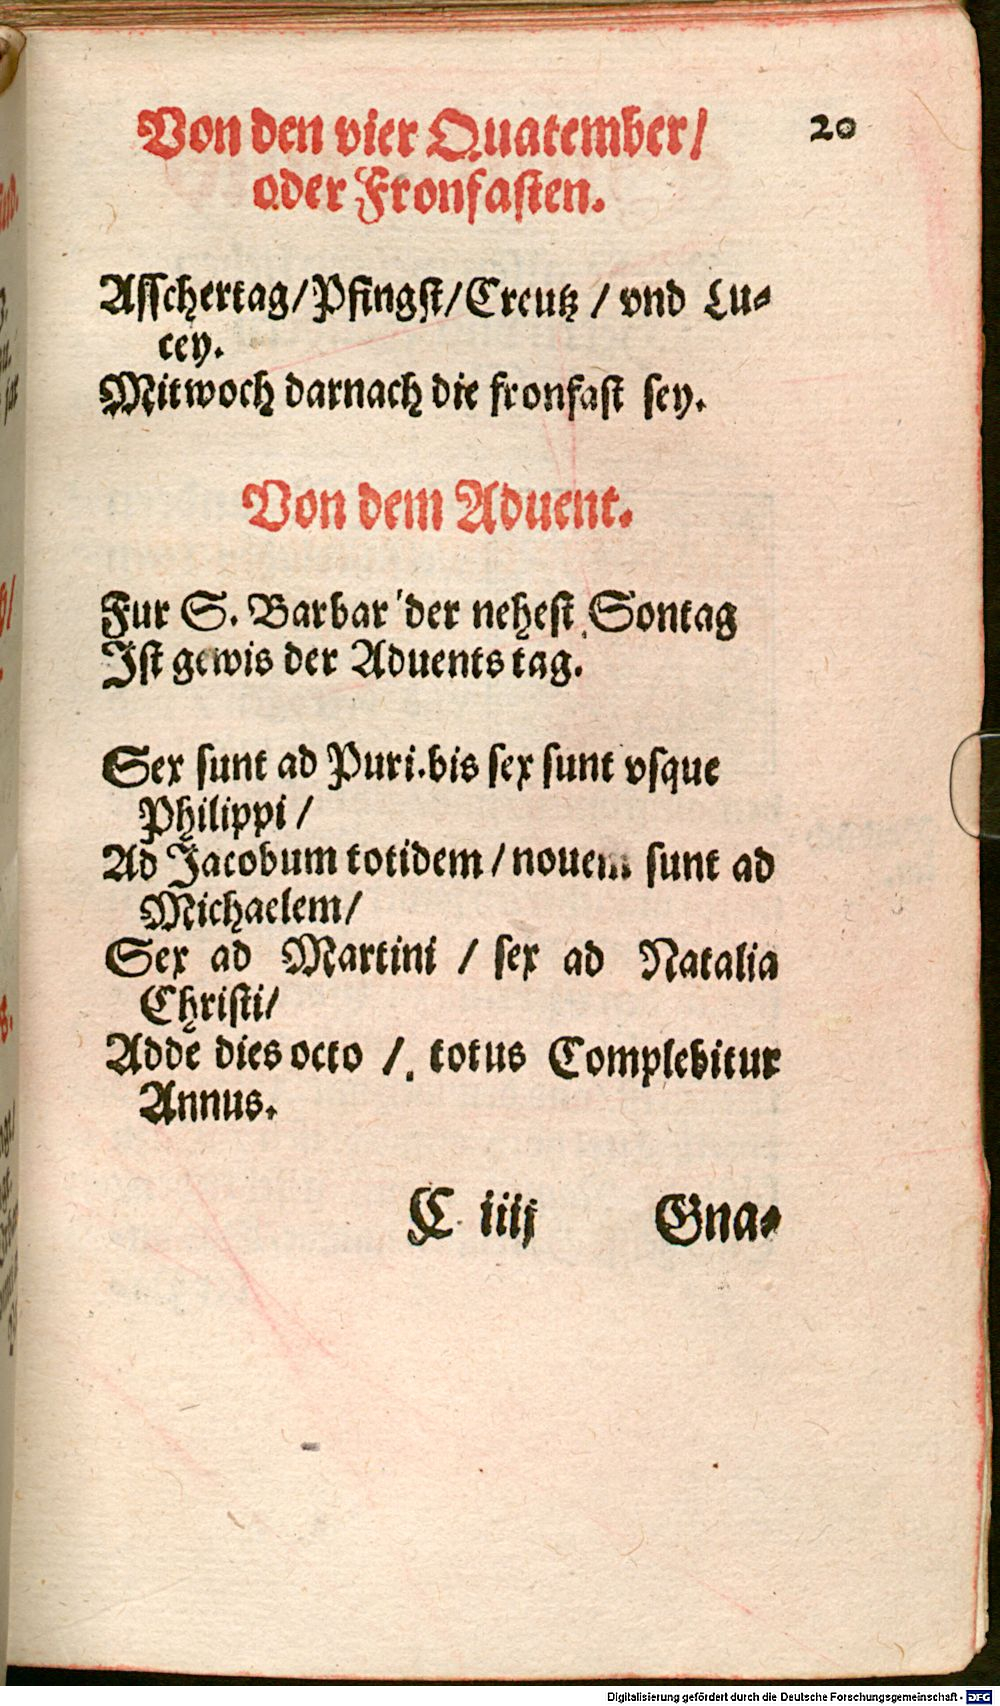 Von den vier Quatember/ 20
oder Fronfasten.
Asschertag/Pfingst/Creutz / vnd Lu-
cey.
Mitwoch darnach die fronfast sey.
Von dem Aduent.
Fur S. Barbar der nehest Sontag
Ist gewis der Aduents tag.
Sex sunt ad Puri. bis sex sunt vsque
Philippi /
Ad Jacobum totidem / nouem sunt ad
Michaelem/
Sex ad Martini / sex ad Natalia
Christi/
Adde dies octo /. totus Complebitur
Annus.
C iiij Gna-
Digitalisierung gefördert durch die Deutsche Forschungsgemeinschaft - DFG